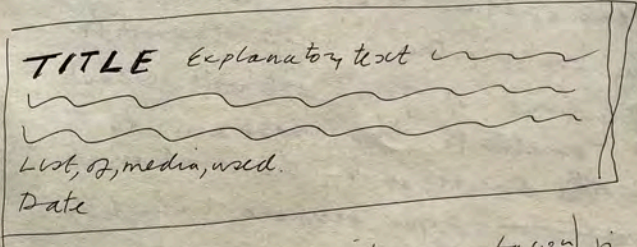 TITLE Explanatory text
List, of, media, used.
Date